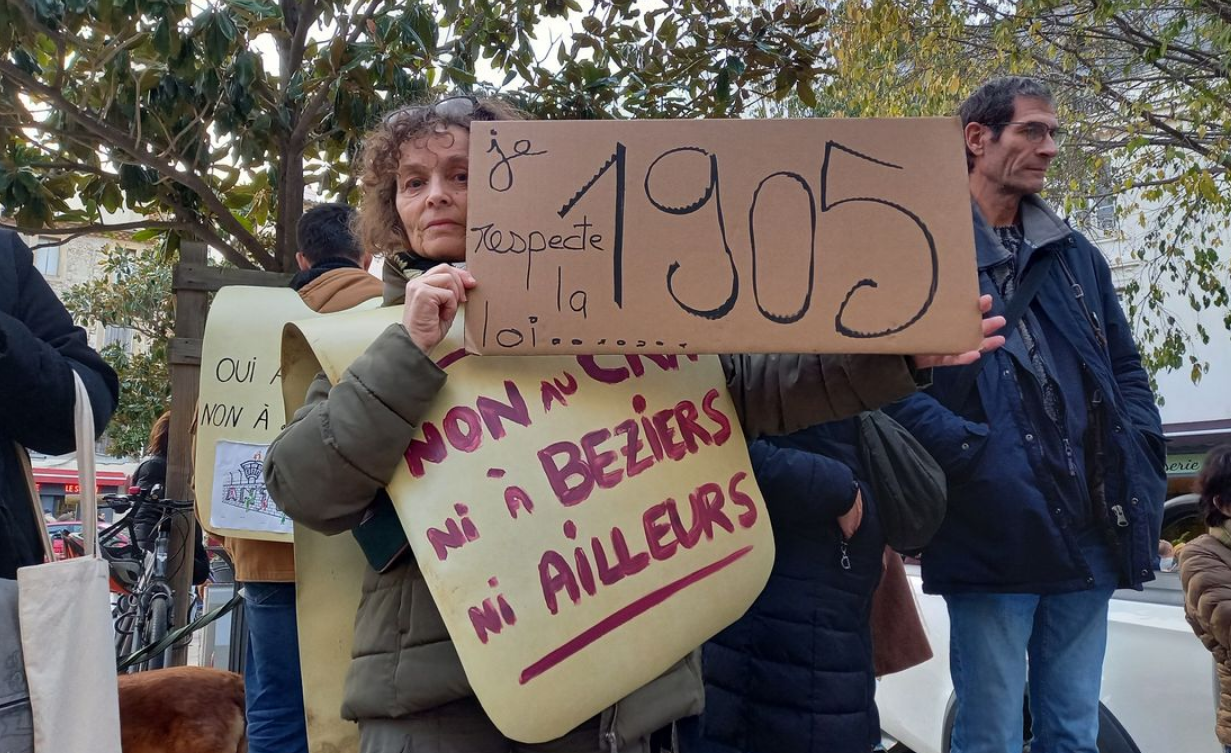 je
respecte
la
loi...........
1905
NON AU
NI À BEZIERS
NI AILLEURS
OUI À
NON À
LE S
serie